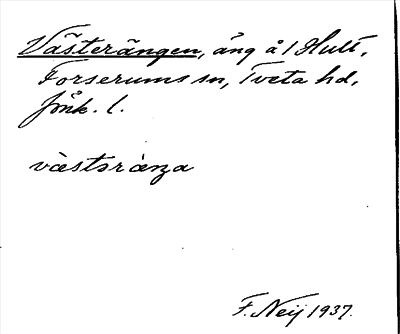 Västerängen, äng å 1 Hult,
Forserums sn, Tveta hd,
Jönk. l.
væstəræŋa
F. Neij 1937.